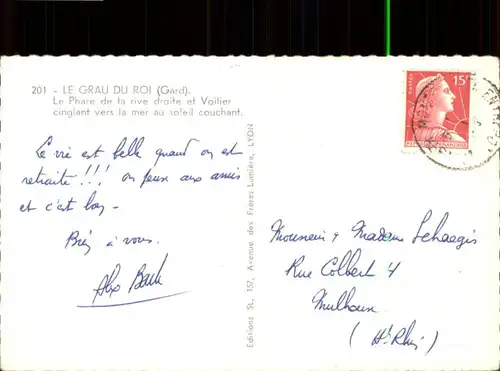 201 - LE GRAU DU ROI (Gard).
Le Phare de la rive droite et Voilier
cinglant vers la mer au soleil couchant.
La vie est belle quand on est
retraité !!! on pense aux amis
et c'est bon -
à vous.
Editions SL, 157, Avenue des Frères Lumière, LYON
15F
POSTES
Monsieur & Madame Lehaegis
Rue Colbert 4
Mulhouse
(Ht Rhin)